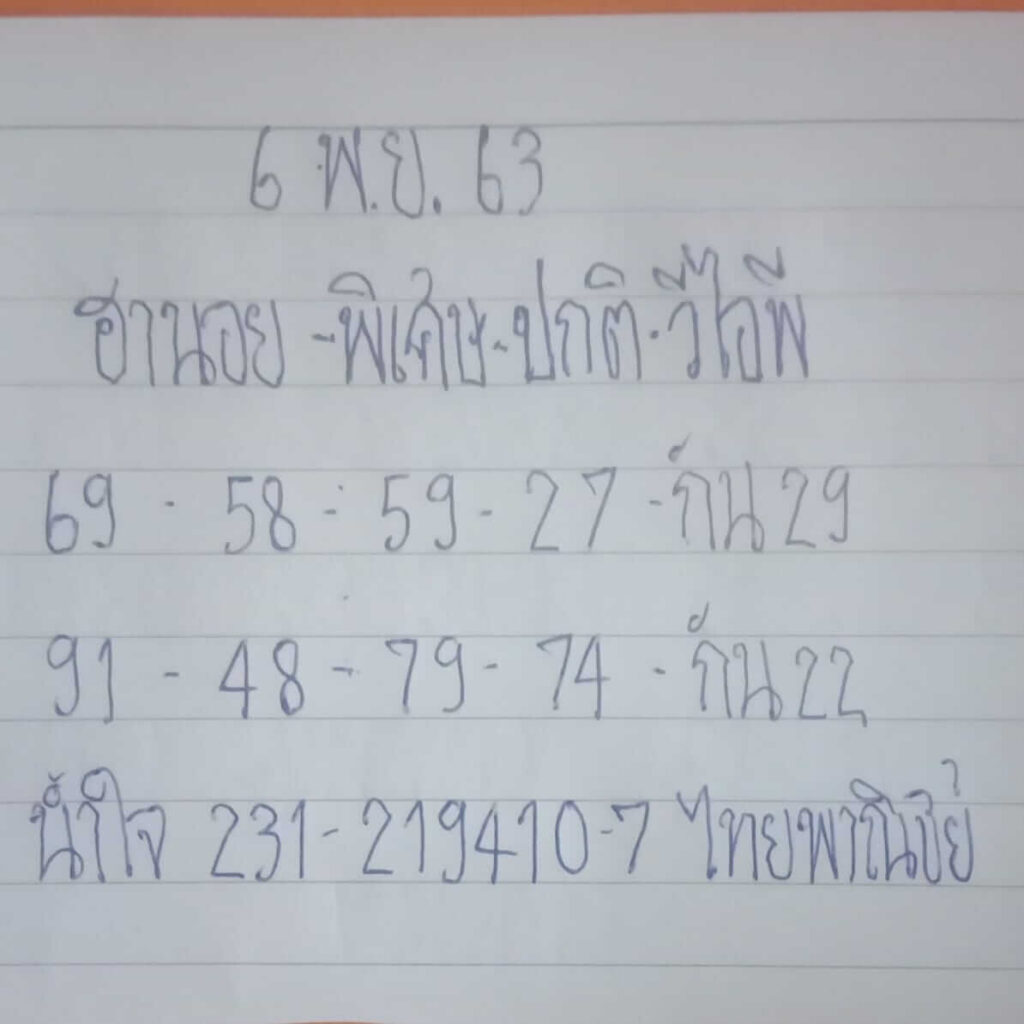 6 พ.ย. 63
ฮานอย - พิเศษ - ปกติ - วีไอพี
69 - 58 - 59 - 27 - กัน 29
91 - 48 - 79 - 74 - กัน 22
น้ำใจ 231-219410-7 ไทยพาณิชย์